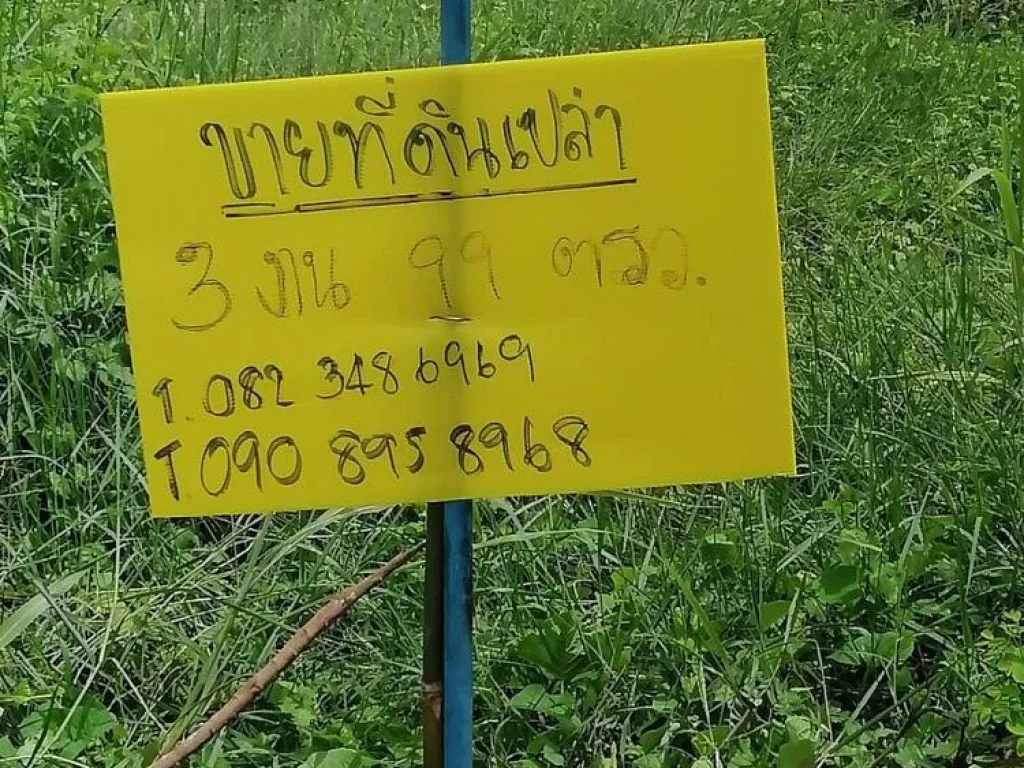 ขายที่ดินเปล่า
3 งาน 99 ตรว.
T. 082 348 6969
T. 090 895 8968